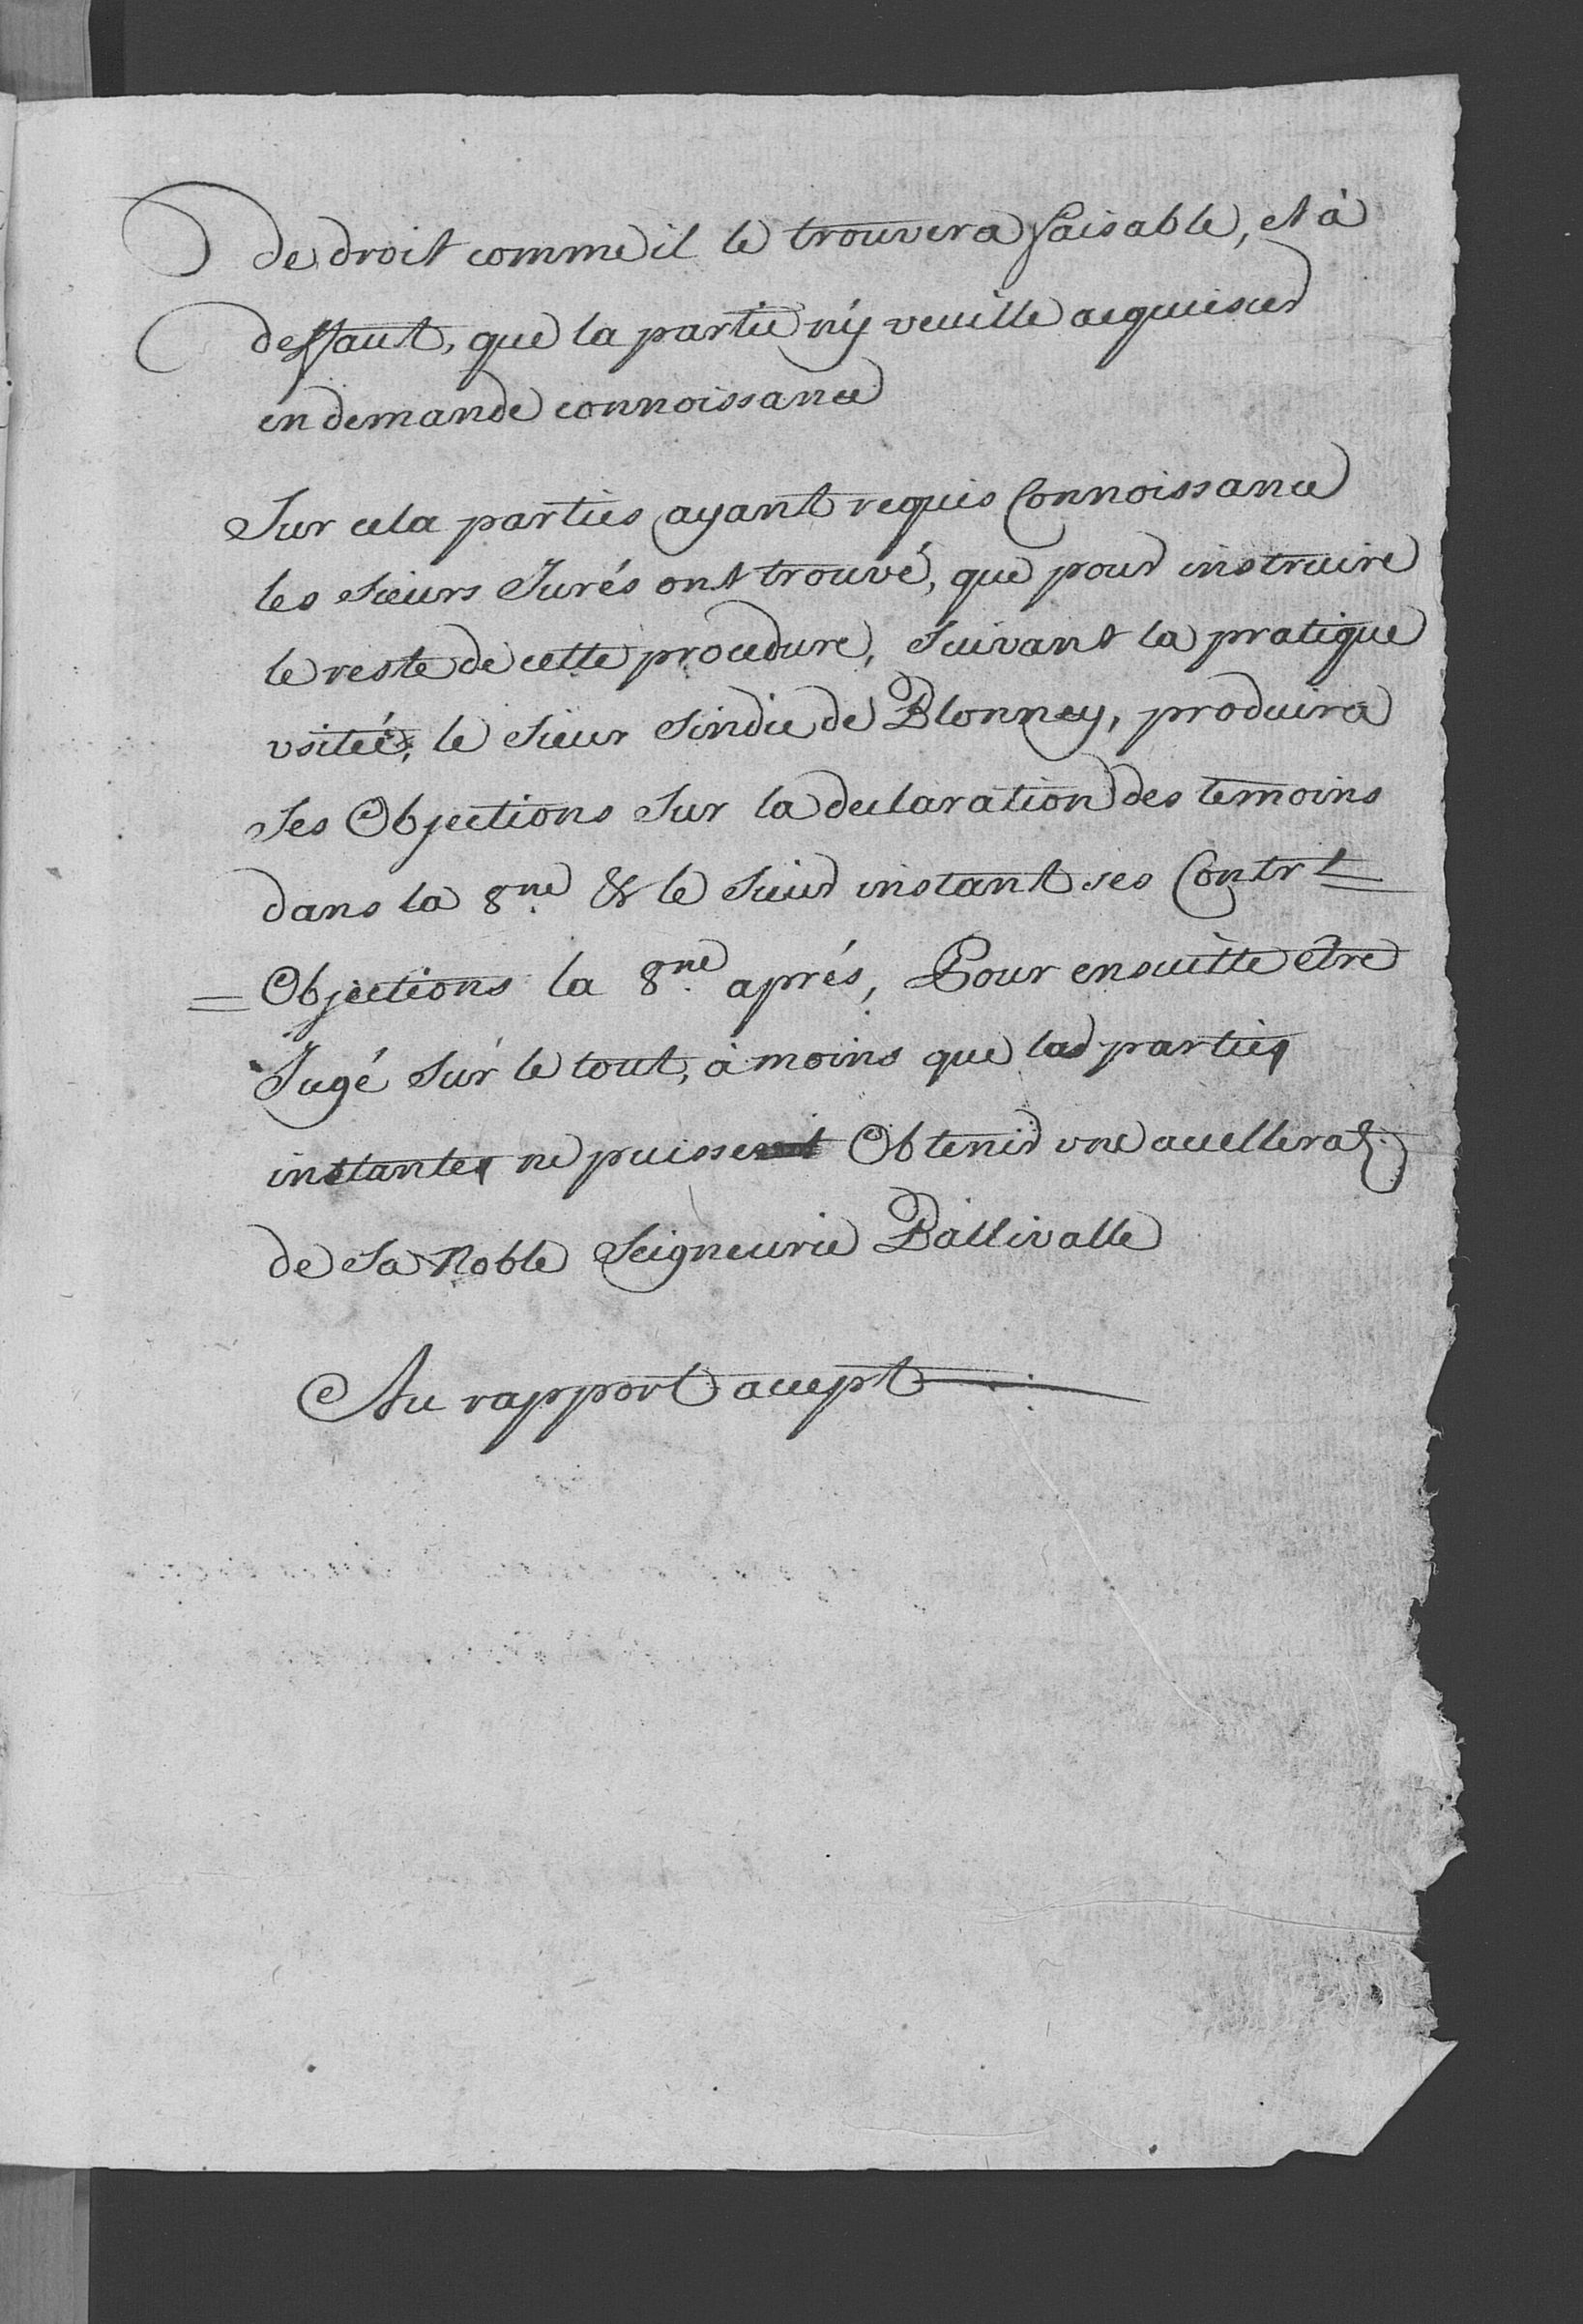 de droit comme il le trouvera faisable, et à
deffaut, que la partie n'ÿ veuille acquiescer
en demande connoissance
Sur cela parties ayant requis Connoissance
les Sieurs Jurés ont trouvé, que pour instruire
le reste de cette procedure, Suivant la pratique
usitée, le Sieur Sindic de Blonney, produira
Ses Objections Sur la declaration des temoins
dans la 8.ne & le Sieur instant ses Contr
= Objections la 8.ne aprés, Pour ensuitte être
Jugé Sur le tout, à moins que parties
instantes ne puisse Obtenir une accellerat.
de Sa Noble Seigneurie Ballivalle
Au rapport accept